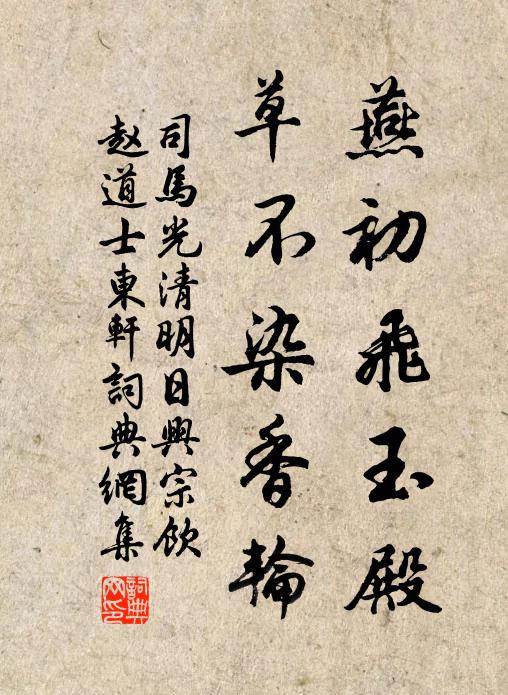 燕初飛玉殿
草不染香輪
司馬光清明日興宗飲
赵道士東軒詞典網集
詞典网印